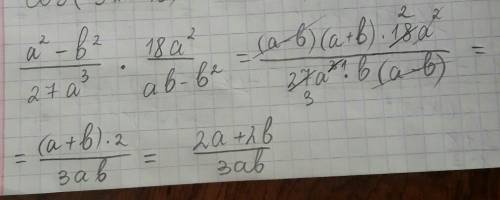 (a² - b²)/(27a³) · (18a²)/(ab - b²) = ((a-b)(a+b) · 18² a²)/(27₃a³¹ · b(a-b)) =
= ((a+b) · 2)/(3ab) = (2a+2b)/(3ab)